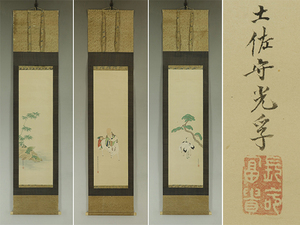 土佐守光孚